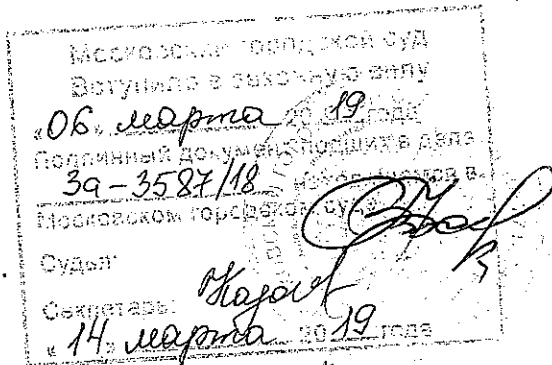 Московский городской суд
Вступило в законную силу
«06» марта 2019 года
Подлинный документ подшит в деле
3а-3587/18 находящемся в
Московском городском суде
Судья:
Секретарь:
«14» марта 2019 года